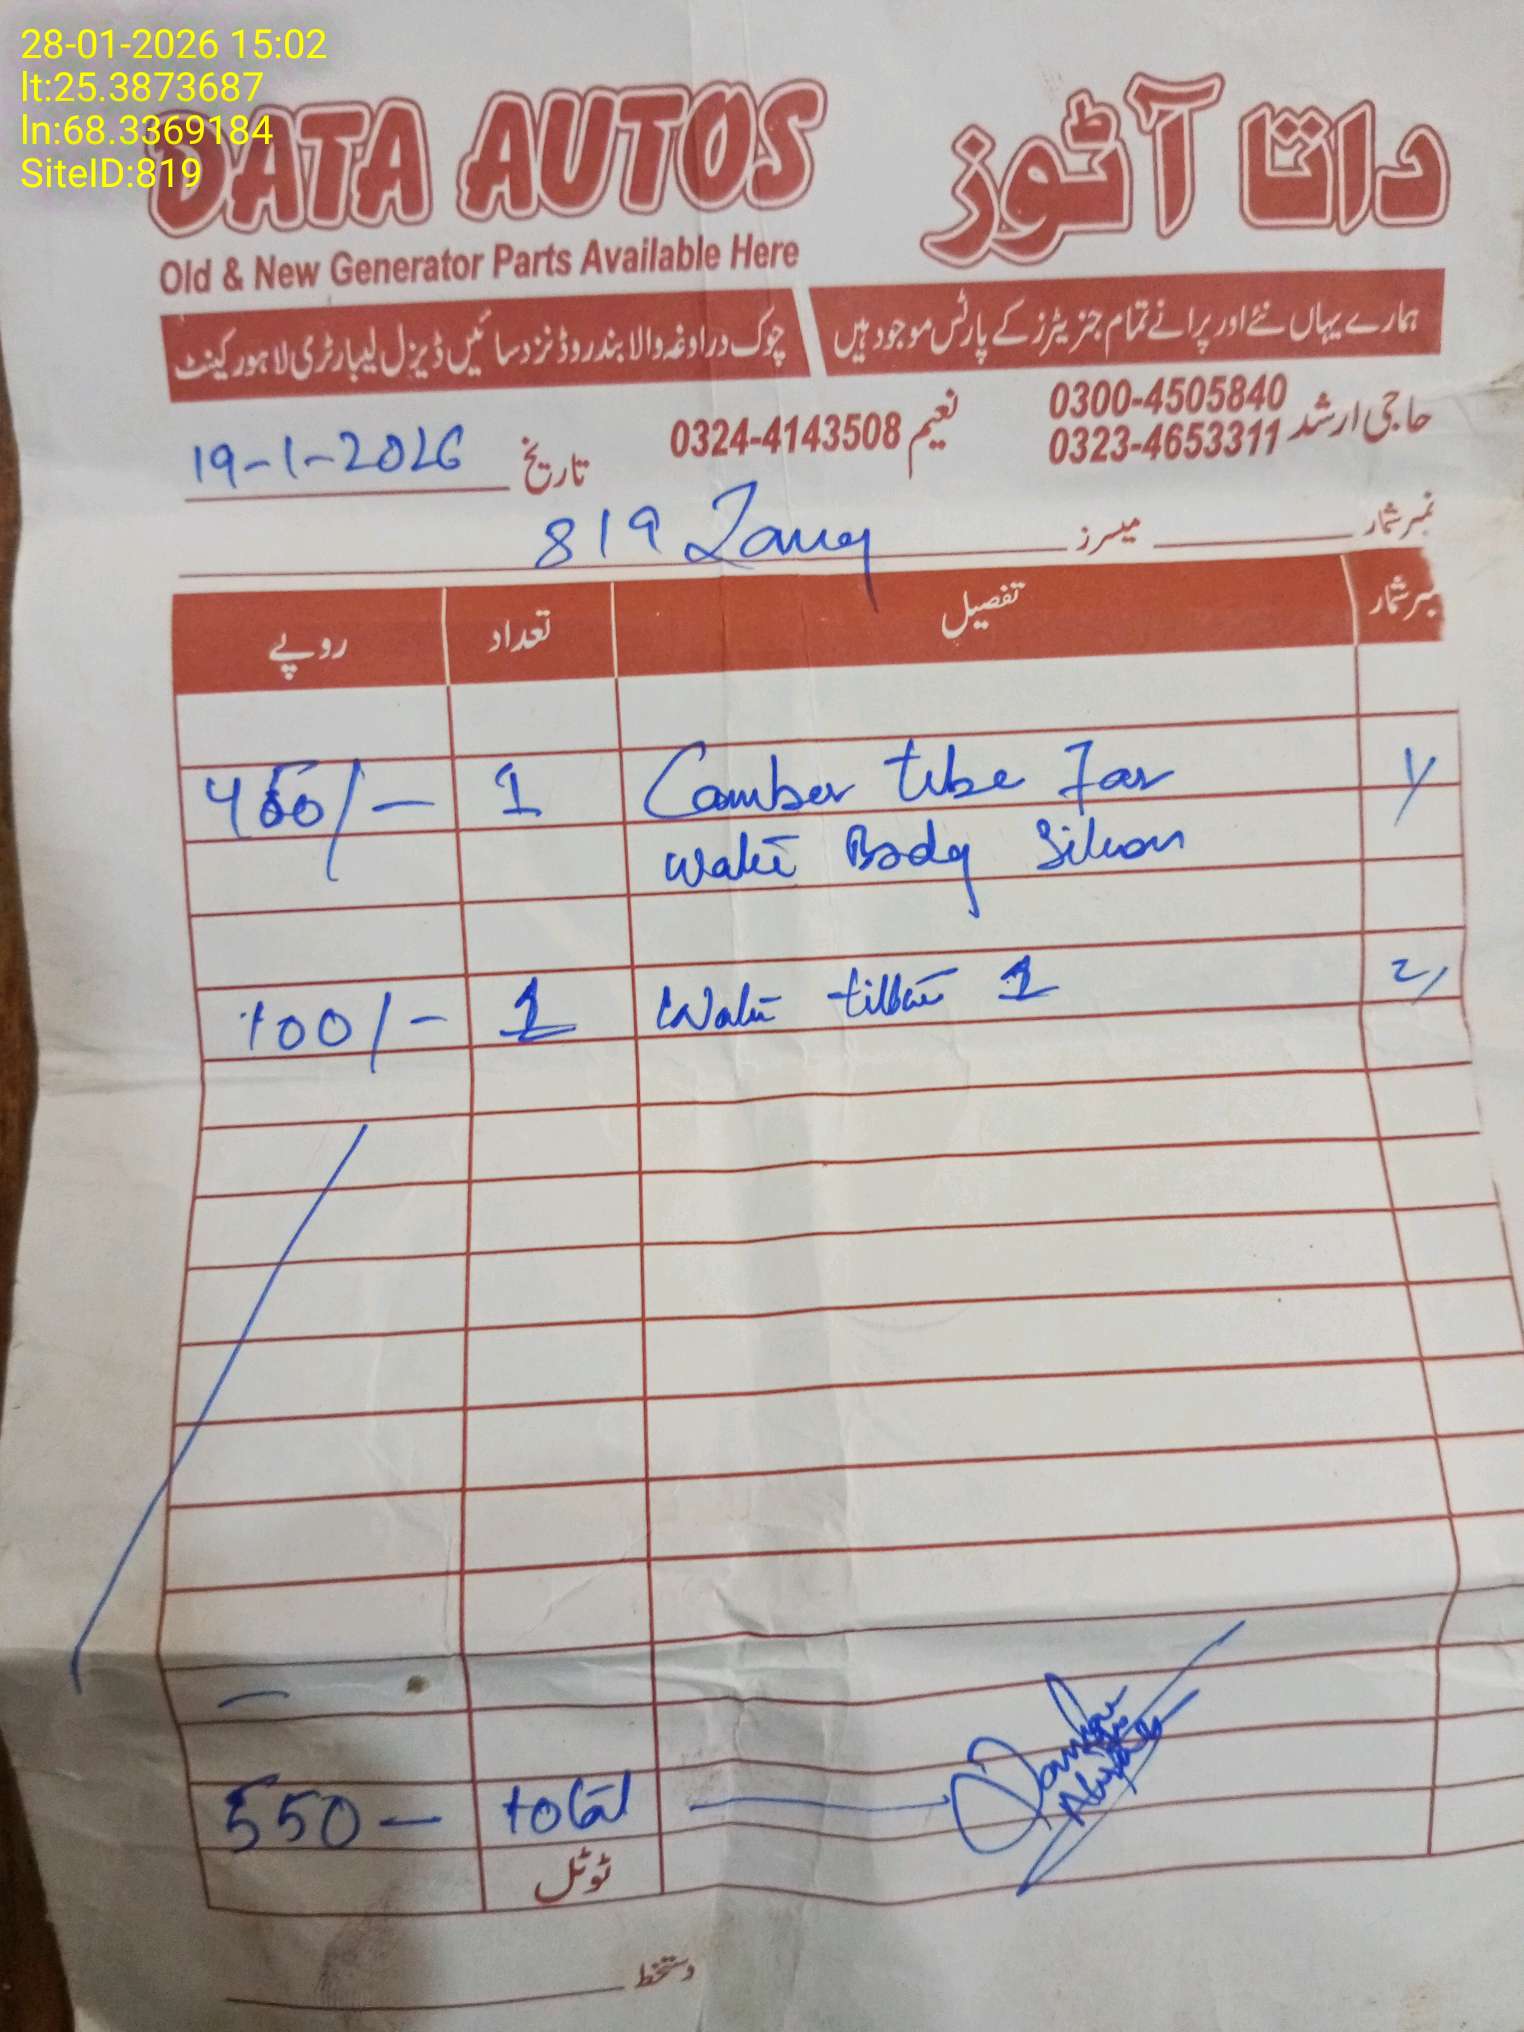 28-01-2026 15:02
lt:25.3873687
ln:68.3369184
SiteID:819
DATA AUTOS
داتا آٹوز
Old & New Generator Parts Available Here
ہمارے یہاں نئے اور پرانے تمام جنریٹرز کے پارٹس موجود ہیں
چوک دراوغہ والا بندروڈ نزد سائیں ڈیزل لیبارٹری لاہور کینٹ
حاجی ارشد 0300-4505840
0323-4653311
نعیم 0324-4143508
تاریخ 19-1-2026
نمبر شمار میسرز
819
نمبر شمار تفصیل تعداد روپے
1/ Camber tube 1 /-
Body
2/ 1 1 100/-
total 550-
ٹوٹل
دستخط